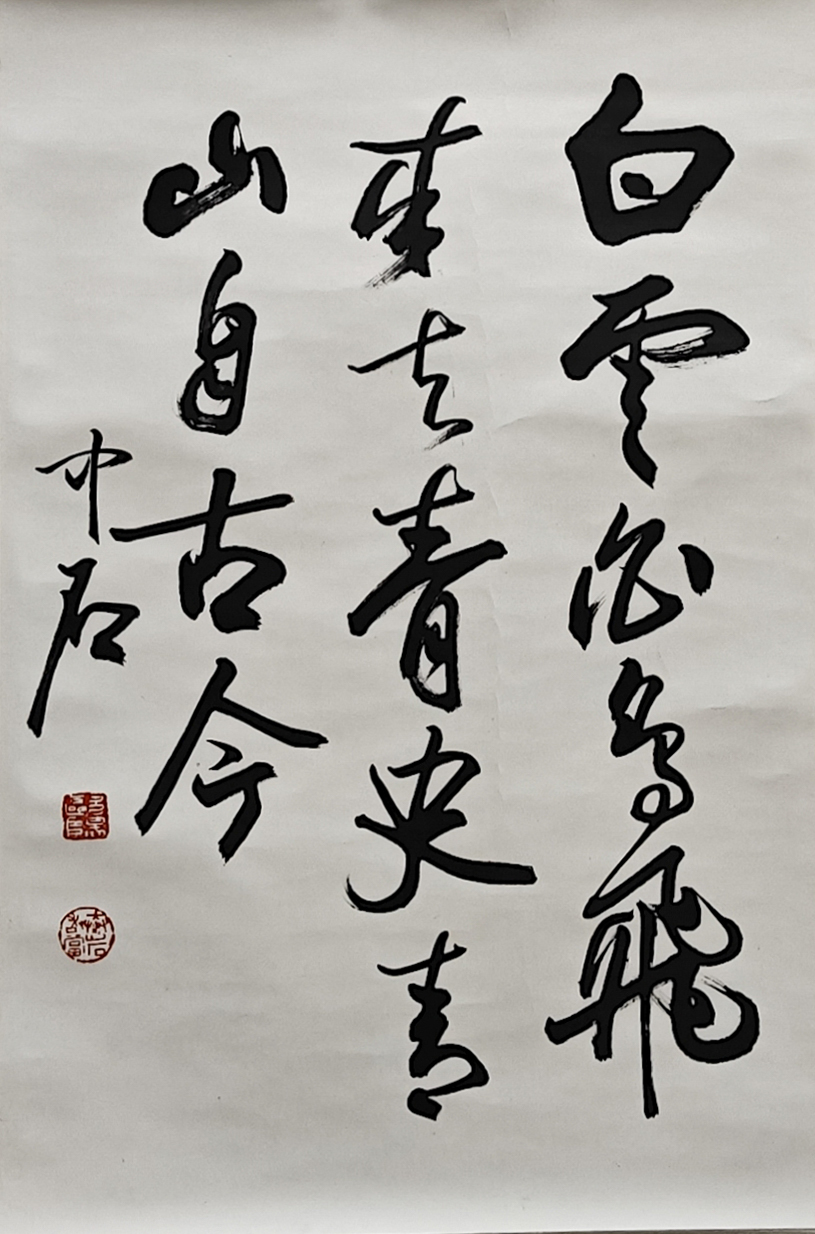 白雲白鳥飛
來去青史青
山自古今
中石